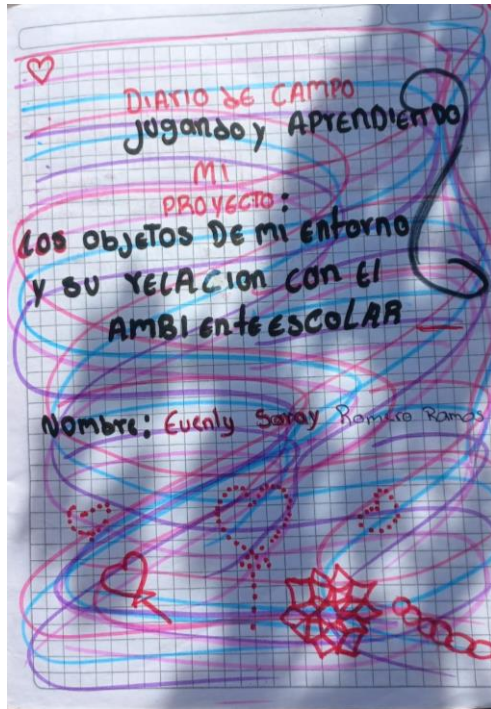 DIArIO de CAMPO
jugando y APrENDIENDO
MI
PROYECTO:
Los obJETOS DE mi Entorno
y su rELACIon con El
AMBIEnte ESCOLAR
Nombre: Evenly Saray Romero Ramos